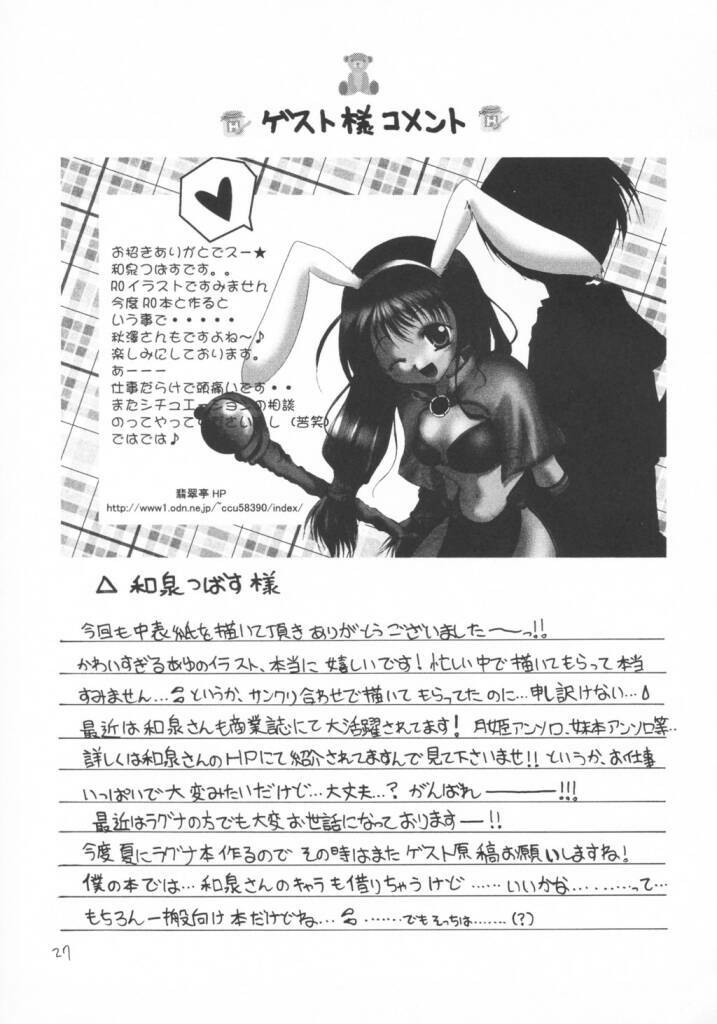 ゲスト様コメント
お招きありがとでスー★
和泉つばすです。。
ROイラストですみません
今度RO本と作ると
いう事で・・・・・
秋澤さんもですよね～♪
楽しみにしております。
あーーー
仕事だらけで頭痛いです・・
またシチュエーションの相談
のってやってくださいまし（苦笑）
ではでは♪
翡翠亭HP
http://www1.odn.ne.jp/~ccu58390/index/
△ 和泉つばす様
今回も中表紙を描いて頂きありがとうございましたーーっ!!
かわいすぎるあゆのイラスト、本当に嬉しいです！忙しい中で描いてもらって本当
すみません…というか、サンクリ合わせで描いてもらってたのに…申し訳けない…
最近は和泉さんも商業誌にて大活躍されてます！月姫アンソロ、妹本アンソロ等…
詳しくは和泉さんのHPにて紹介されてますんで見て下さいませ!!というか、お仕事
いっぱいで大変みたいだけど…大丈夫…？がんばれーーーー!!!
最近はラグナの方でも大変お世話になっておりますー!!
今度夏にラグナ本作るのでその時はまたゲスト原稿お願いしますね！
僕の本では…和泉さんのキャラも借りちゃうけど……いいかな………って…
もちろん一搬向け本だけどね…………でもそっちは……(？)
27